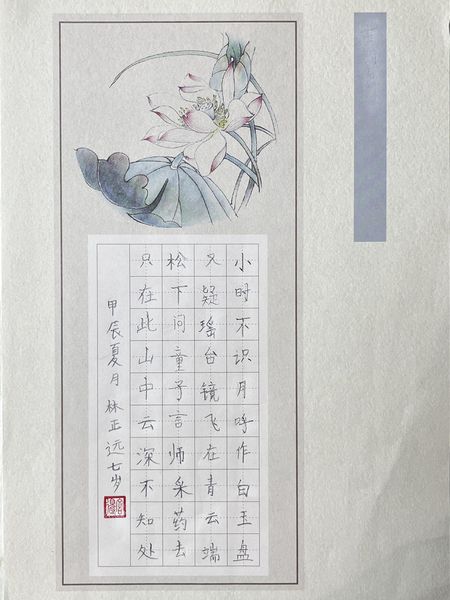 小时不识月呼作白玉盘
又疑瑶台镜飞在青云端
松下问童子言师采药去
只在此山中云深不知处
甲辰夏月林正远七岁